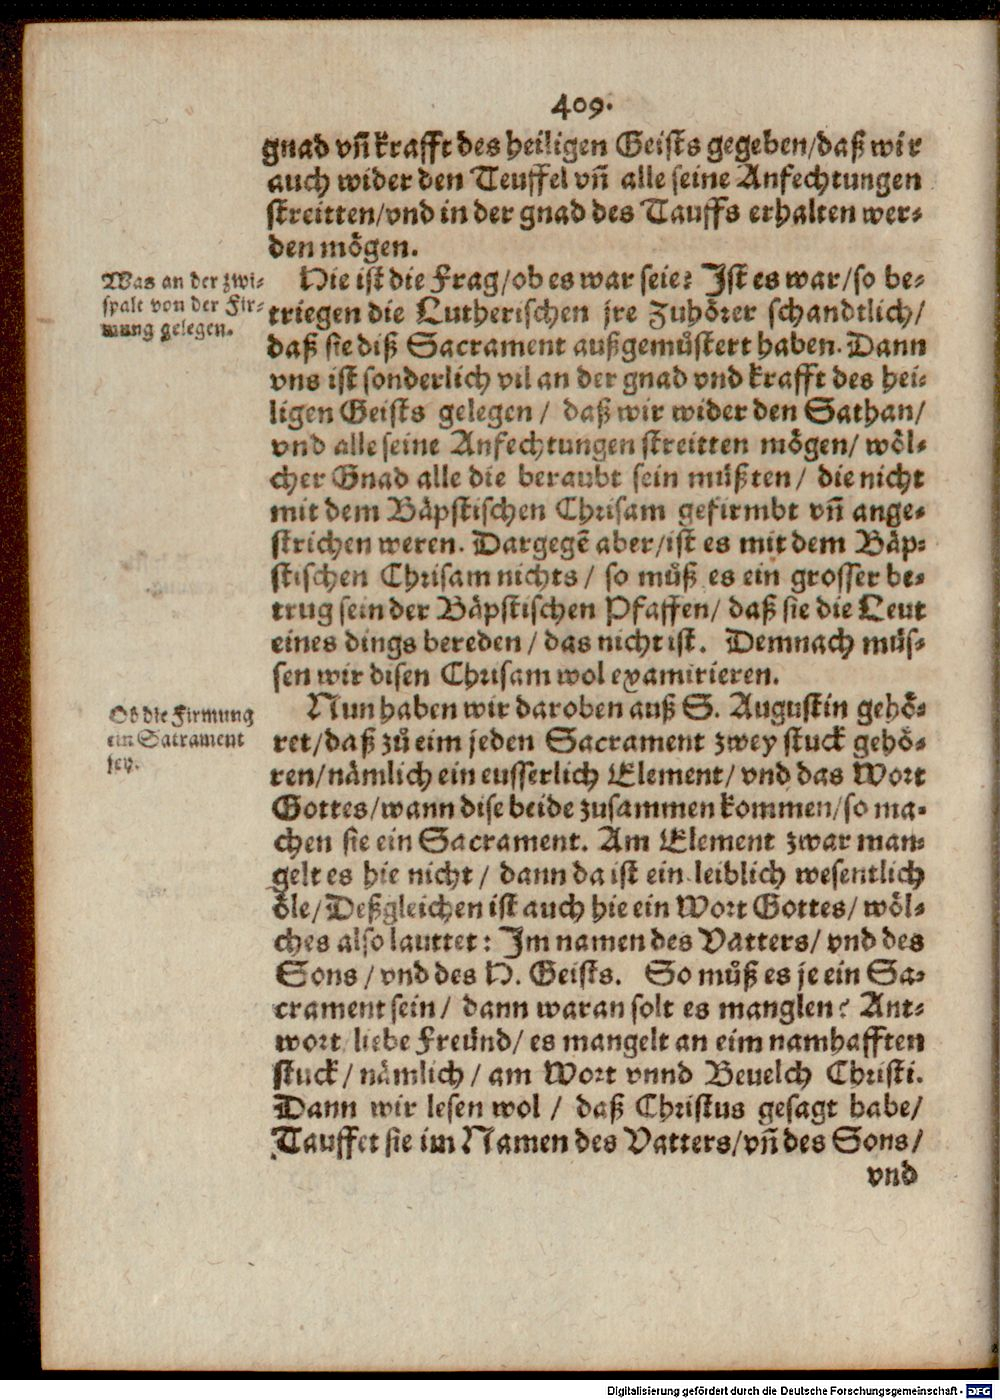 409.
gnad vñ krafft des heiligen Geists gegeben/daß wir
auch wider den Teuffel vñ alle seine Anfechtungen
streitten/vnd in der gnad des Tauffs erhalten wer⸗
den mögen.
Was an der zwi⸗
spalt von der Fir⸗
mung gelegen.
Hie ist die Frag/ob es war seie? Ist es war/so be⸗
triegen die Lutherischen jre Zuhörer schandtlich/
daß sie diß Sacrament außgemüstert haben. Dann
vns ist sonderlich vil an der gnad vnd krafft des hei⸗
ligen Geists gelegen/ daß wir wider den Sathan/
vnd alle seine Anfechtungen streitten mögen/ wöl⸗
cher Gnad alle die beraubt sein müßten/ die nicht
mit dem Bäpstischen Chrisam gefirmbt vñ ange⸗
strichen weren. Dargegẽ aber/ist es mit dem Bäp⸗
stischen Chrisam nichts/ so müß es ein grosser be⸗
trug sein der Bäpstischen Pfaffen/ daß sie die Leut
eines dings bereden/ das nicht ist. Demnach müs⸗
sen wir disen Chrisam wol examirieren.
Ob die Firmung
ein Sacrament
sey.
Nun haben wir daroben auß S. Augustin gehö⸗
ret/daß zů eim jeden Sacrament zwey stuck gehö⸗
ren/nämlich ein eusserlich Element/ vnd das Wort
Gottes/wann dise beide zusammen kommen/so ma⸗
chen sie ein Sacrament. Am Element zwar man⸗
gelt es hie nicht/ dann da ist ein leiblich wesentlich
öle/Deßgleichen ist auch hie ein Wort Gottes/ wöl⸗
ches also lauttet: Im namen des Vatters/ vnd des
Sons/ vnd des H. Geists. So müß es je ein Sa⸗
crament sein/ dann waran solt es manglen? Ant⸗
wort liebe Freünd/ es mangelt an eim namhafften
stuck/ nämlich/ am Wort vnnd Beuelch Christi.
Dann wir lesen wol/ daß Christus gesagt habe/
Tauffet sie im Namen des Vatters/vñ des Sons/
vnd
Digitalisierung gefördert durch die Deutsche Forschungsgemeinschaft - DFG